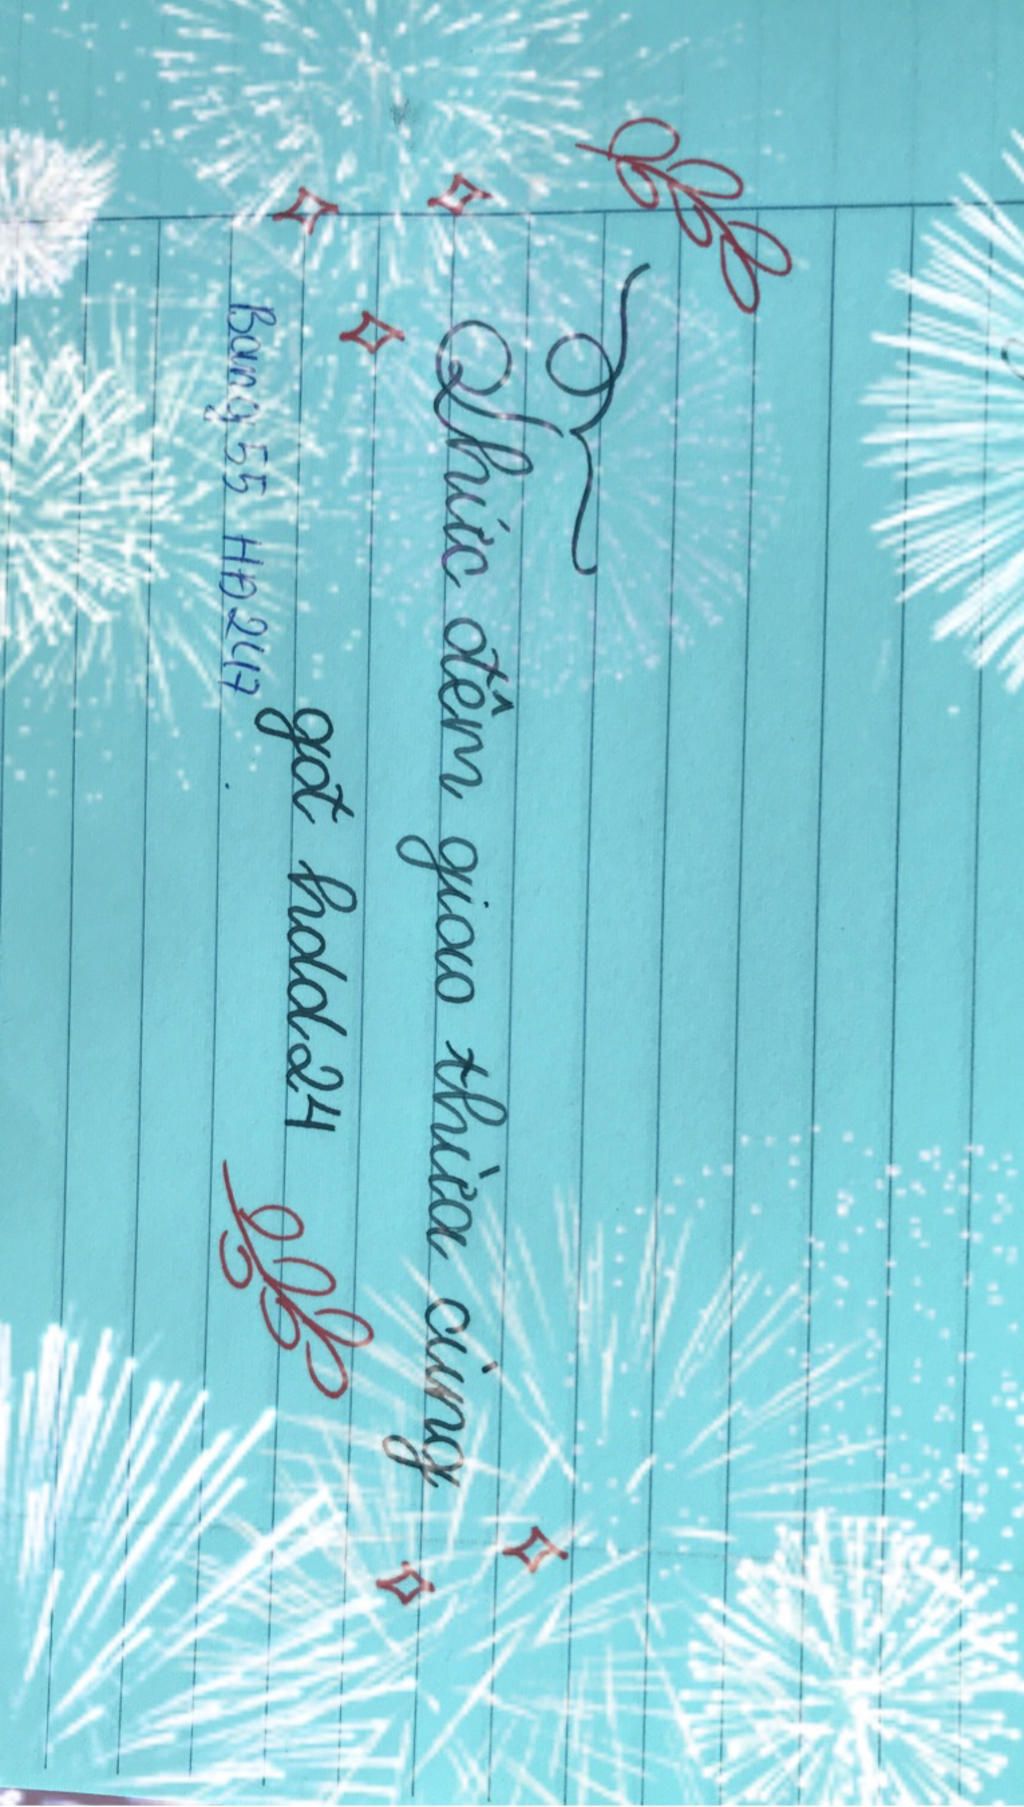 Thức đêm giao thừa cùng
gđt hdd24
Bang 55 HD247